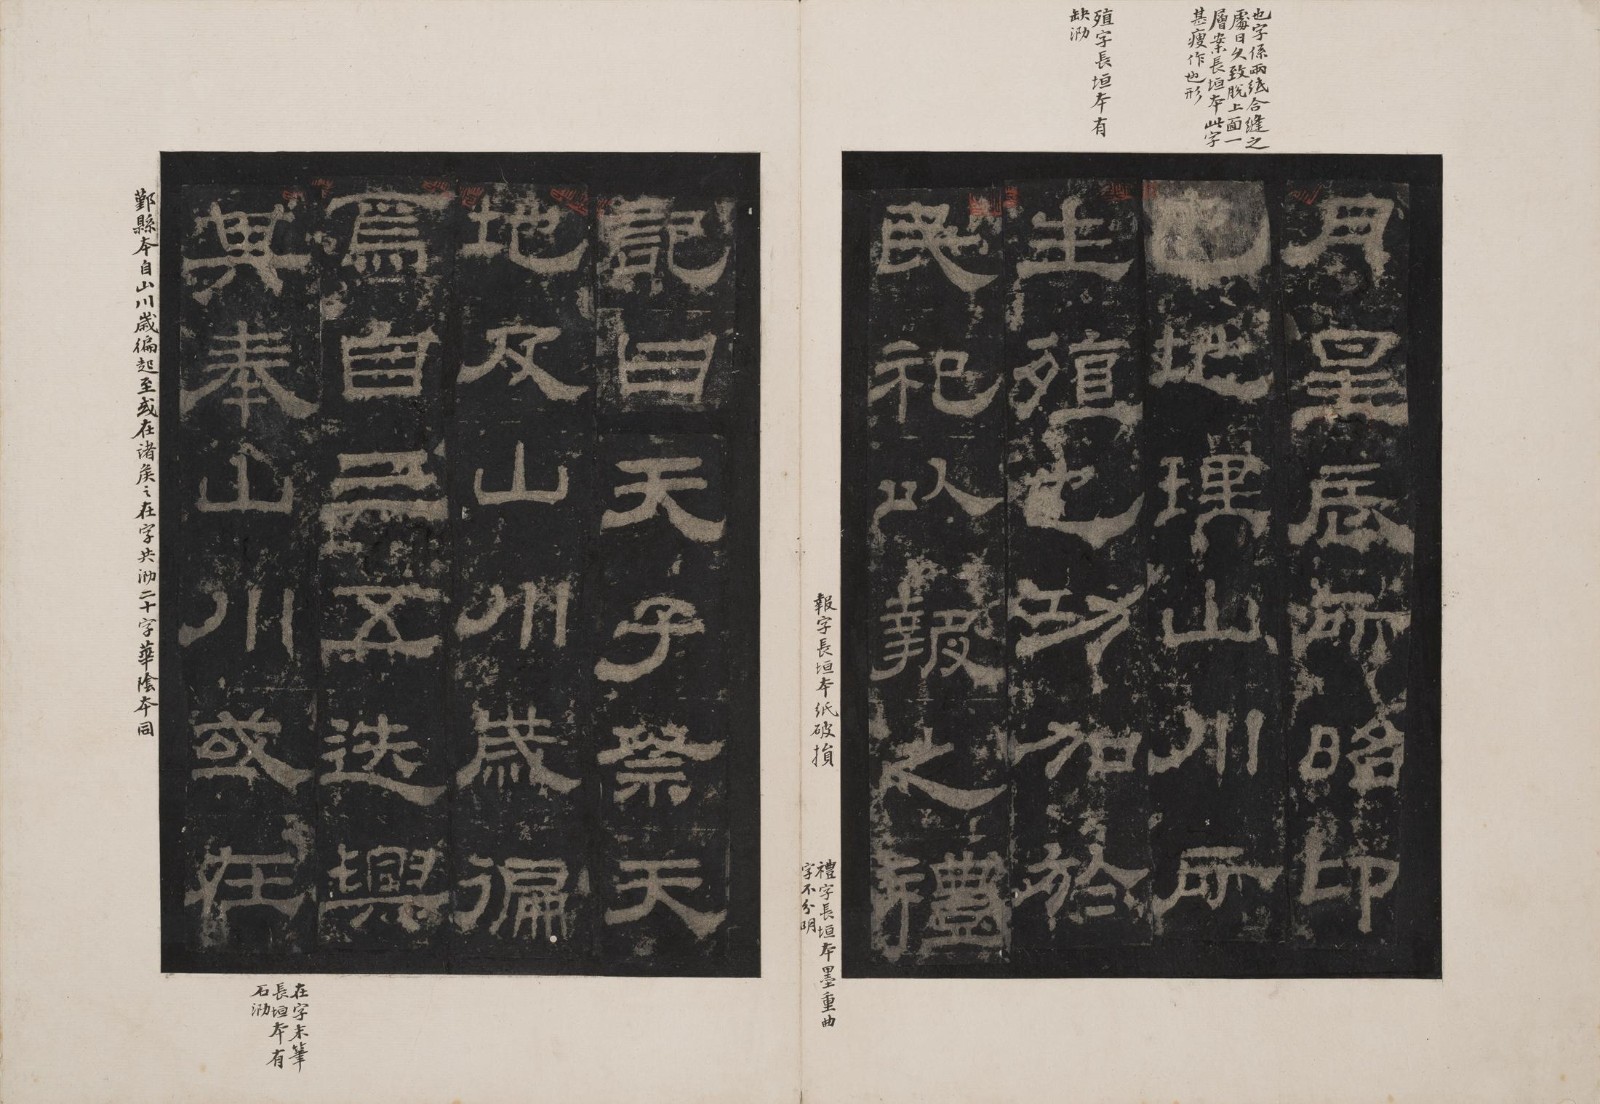 也字係兩紙合縫之
處日久致脫上面一
層案長垣本此字
甚瘦作也形
殖字長垣本有
缺泐
月星辰所昭卬
也地理山川所
生殖也功加於
民祀以報之禮
報字長垣本紙破損
禮字長垣本墨重曲
字不分明
記曰天子祭天
地及山川歲徧
焉自三五迭興
其奉山川或在
在字末筆
長垣本有
石泐
鄞縣本自山川歲徧起至或在諸矦之在字共泐二十字華陰本同